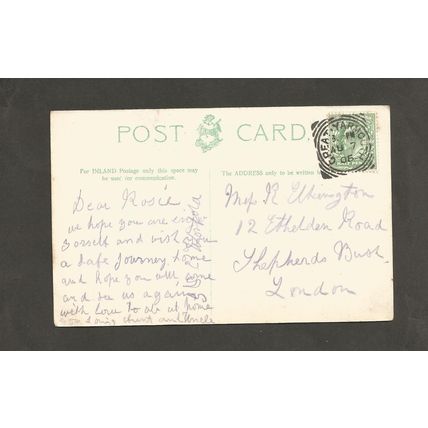 POST CARD.
GREAT YARMOUTH
AU 7
06
For INLAND Postage only this space may
be used for communication.
The ADDRESS only to be written
Dear Rosie
we hope you are
yorself and wish you
a safe Journey home
and hope you will come
and see us again
with love to all at home
from your loving Aunt and Uncle
Miss R Elkington
12 Ethelden Road
Shepherds Bush
London